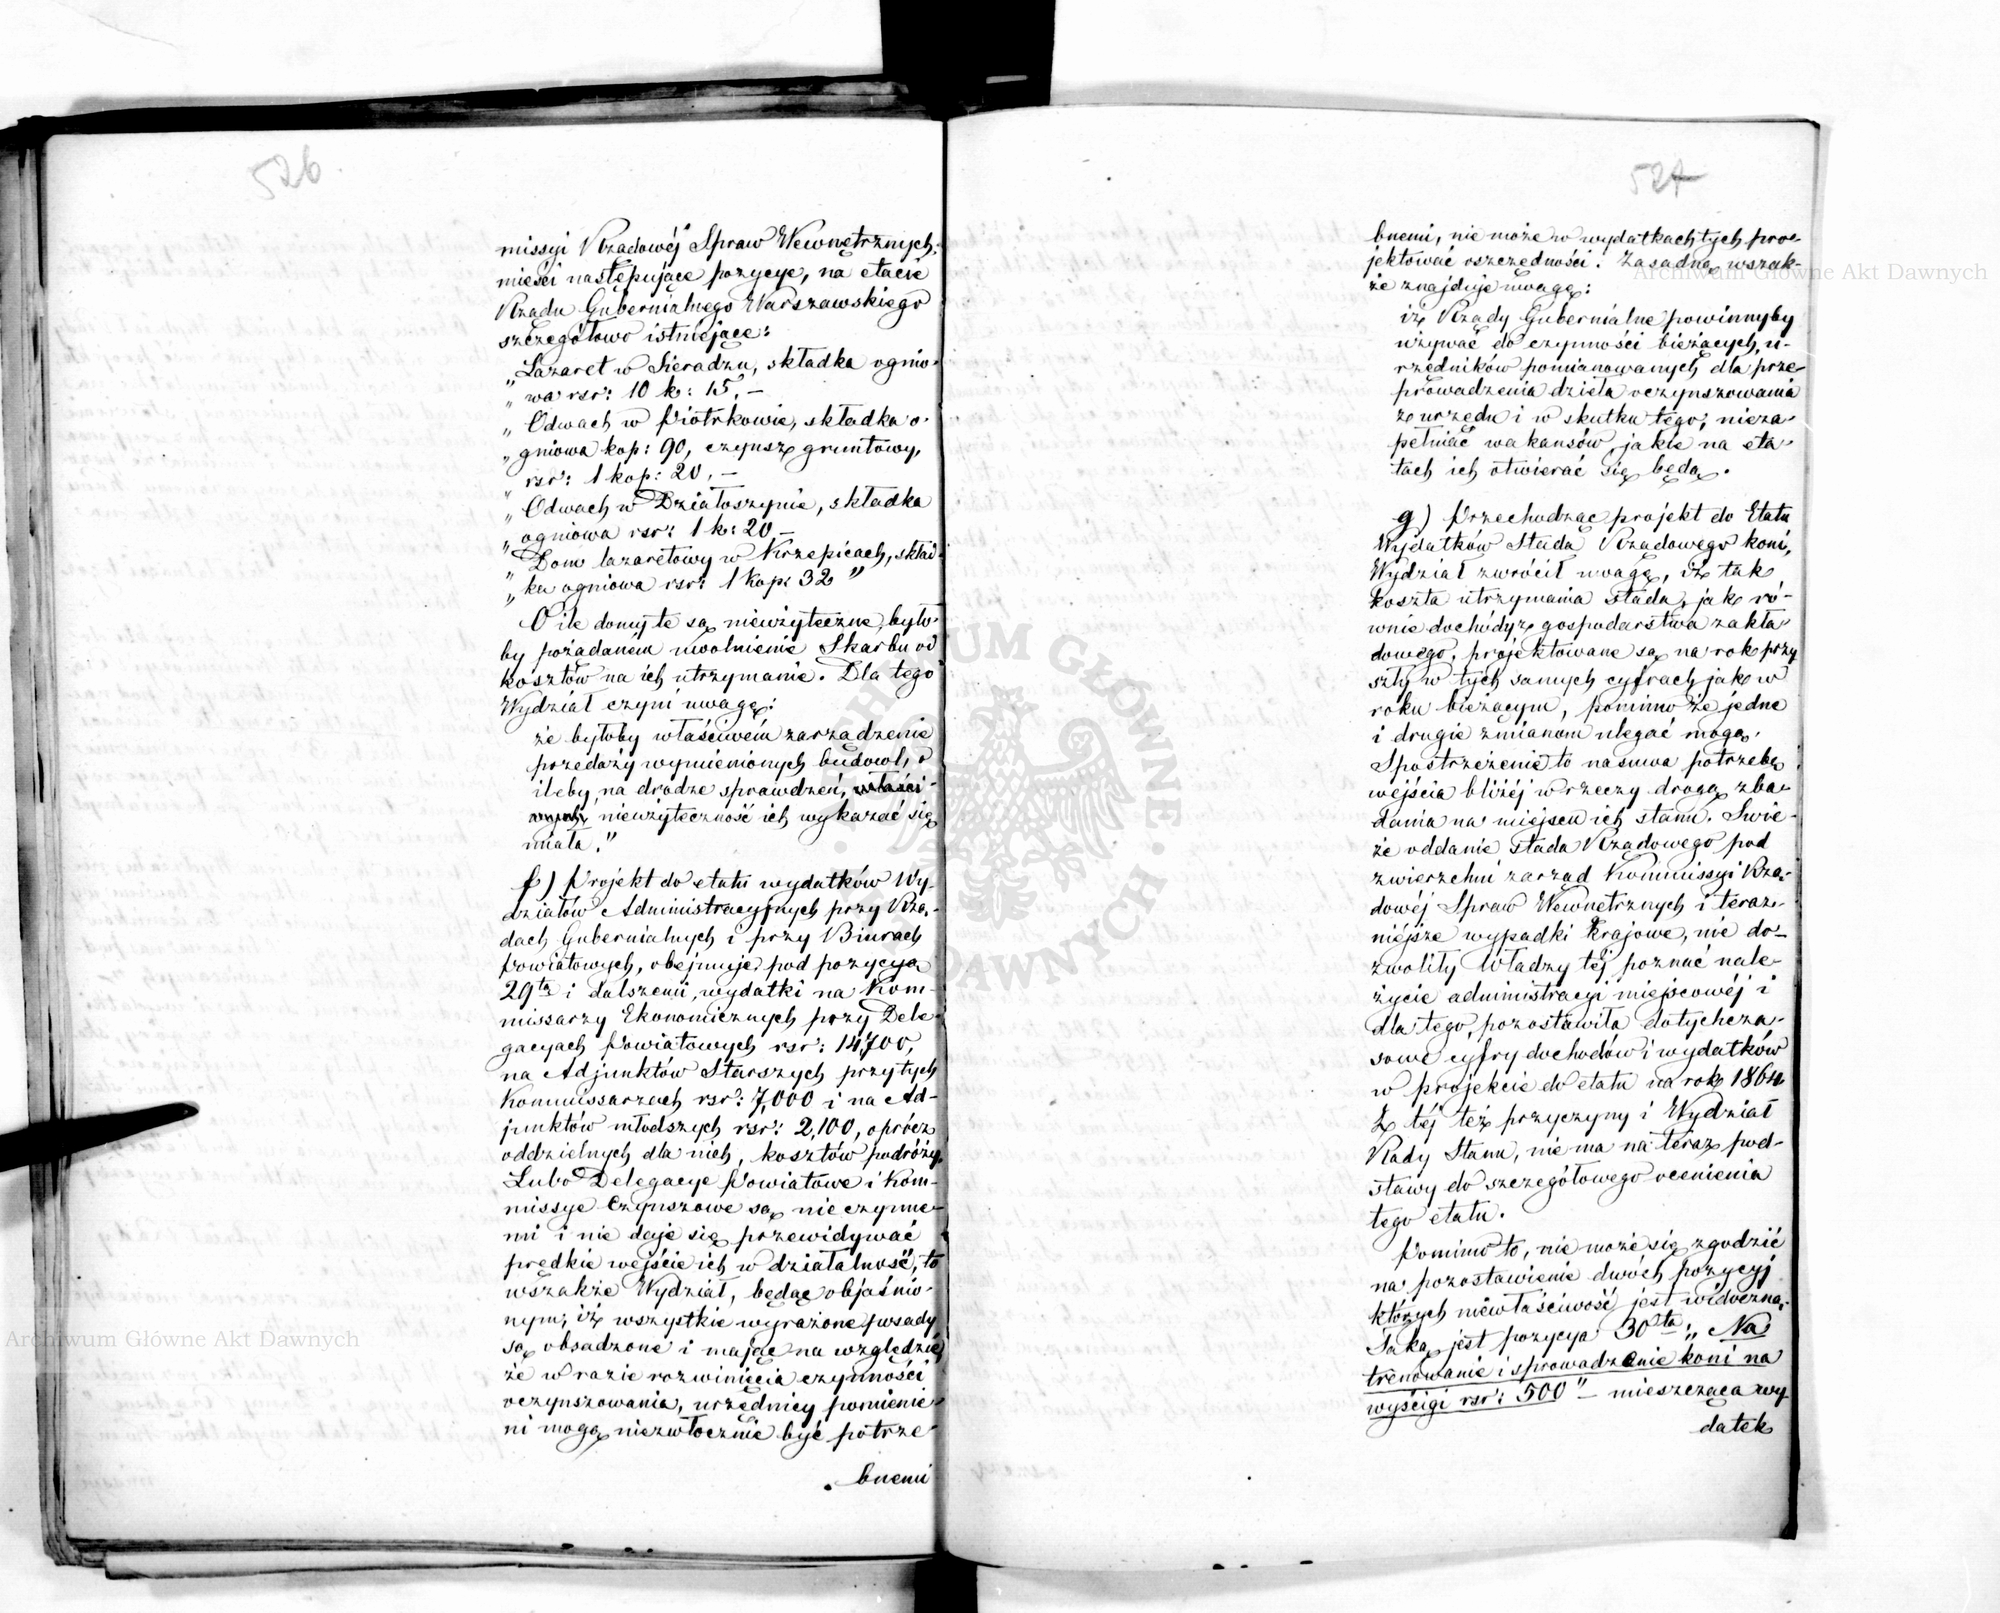 526
missyi Rządowéj Spraw Wewnętrznych
mieści następujące pozycye, na etacie
Rządu Gubernialnego Warszawskiego
szczegółowo istniejące:
„Lazaret w Sieradzu, składka ognio-
„wa rsr: 10 k: 15, —
„Odwach w Piotrkowie, składka o-
„gniowa kop: 90, czynsz gruntowy,
„rsr: 1 kop: 20, —
„Odwach w Działoszynie, składka
„ogniowa rsr: 1 k: 20 —
„Dom lazaretowy w Krzepicach, skład-
„ka ogniowa rsr: 1 kop: 32”
O ile domy te są nieużyteczne, było-
by pożądaném uwolnienie Skarbu od
kosztów na ich utrzymanie. Dla tego
Wydział czyni uwagę:
że byłoby właściwém zarządzenie
przedaży wymienionych budowl, o
ileby, na drodze sprawdzeń, właści-
wych, nieużyteczność ich wykazać się
miała.”
f) Projekt do etatu wydatków Wy-
działów Administracyjnych przy Rzą-
dach Gubernialnych i przy Biurach
Powiatowych, obejmuje pod pozycyą
29tą i dalszemi, wydatki na Kom-
missarzy Ekonomicznych przy Dele-
gacyach Powiatowych rsr: 14,700,
na Adjunktów Starszych przy tych
Kommissarzach rsr: 7,000 i na Ad-
junktów młodszych rsr: 2,100, oprócz
oddzielnych dla nich, kosztów podróży.
Lubo Delegacye Powiatowe i Kom-
missye Czynszowe są nieczynne-
mi i nie daje się przewidywać
prędkie wejście ich w działalność, to
wszakże Wydział, będąc objaśnio-
nym, iż wszystkie wyrażone posady
są obsadzone i mając na względzie
że w razie rozwinięcia czynności
oczynszowania, urzędnicy pomienie-
ni mogą niezwłocznie być potrze-
bnemi
527
bnemi, nie może w wydatkach tych pro-
jektować oszczędności. Zasadną, wszak-
że znajduje uwagę:
iż Rządy Gubernialne powinnyby
używać do czynności bieżących, u-
rzędników pomianowanych dla prze-
prowadzenia dzieła oczynszowania
z urzędu i w skutku tego, nieza-
pełniać wakansów, jakie na eta-
tach ich otwierać się będą.
g) Przechodząc projekt do Etatu
Wydatków Stada Rządowego koni,
Wydział zwrócił uwagę, iż tak
koszta utrzymania stada, jak ró-
wnie dochody z gospodarstwa zakła-
dowego, projektowane są na rok przy
szły w tych samych cyfrach jak w
roku bieżącym, pomimo że jedne
i drugie zmianom ulegać mogą.
Spostrzeżenie to nasuwa potrzebę
wejścia bliżéj w rzeczy drogą zba-
dania na miejscu ich stanu. Świe-
że oddanie stada Rządowego pod
zwierzchni zarząd Kommissyi Rzą-
dowéj Spraw Wewnętrznych i teraz-
niéjsze wypadki krajowe, nie do-
zwoliły Władzy téj poznać nale-
życie administracyi miejscowéj i
dla tego, pozostawiła dotychcza-
sowe cyfry dochodów i wydatków
w projekcie do etatu na rok 1864
Z téj też przyczyny i Wydział
Rady Stanu, nie ma na teraz pod-
stawy do szczegółowego ocenienia
tego etatu.
Pomimo to, nie może się zgodzić
na pozostawienie dwóch pozycyj
których niewłaściwość jest widoczną.
Taką jest pozycya 30ta: „Na
trenowanie i sprowadzenie koni na
wyścigi rsr: 500” — mieszcząca wy
datek
Archiwum Główne Akt Dawnych
Archiwum Główne Akt Dawnych
ARCHIWUM GŁÓWNE AKT DAWNYCH